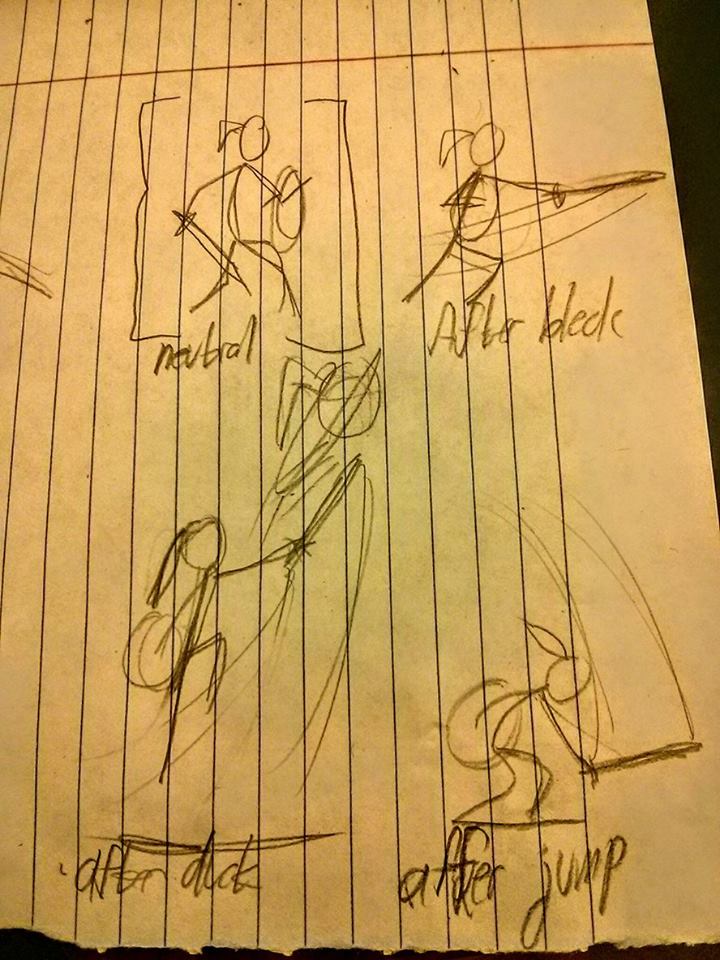 neutral
After block
after duck
after jump